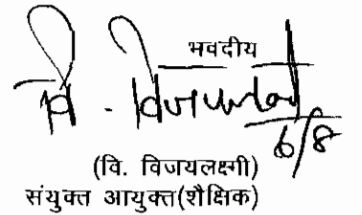 भवदीय
वि. विजयलक्ष्मी
6/8
(वि. विजयलक्ष्मी)
संयुक्त आयुक्त(शैक्षिक)